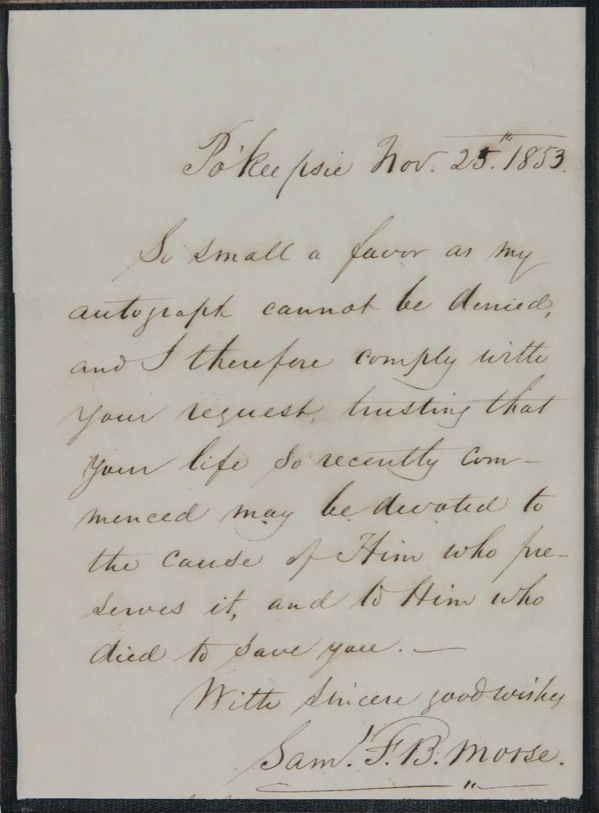 Po'keepsie Nov. 25th. 1853.
So small a favor as my
autograph cannot be denied,
and I therefore comply with
your request, trusting that
your life so recently com-
menced may be devoted to
the cause of Him who pre-
serves it, and to Him who
died to save you. —
With sincere good wishes
Saml. F. B. Morse.